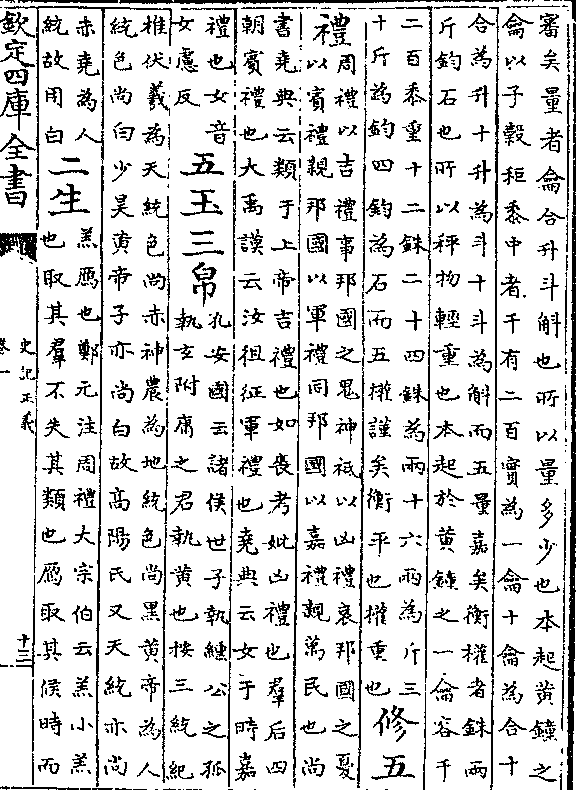 審矣量者龠合升斗斛也所以量多少也本起黄鐘之
龠以子穀秬黍中者千有二百實為一龠十龠為合十
合為升十升為斗十斗為斛而五量嘉矣衡權者銖兩
斤鈞石也所以秤物輕重也本起於黄鐘之一龠容千
二百黍重十二銖二十四銖為兩十六兩為斤三
十斤為鈞四鈞為石而五權謹矣衡平也權重也
修五
禮
周禮以吉禮事邦國之鬼神祇以凶禮哀邦國之憂
以賓禮親邦國以軍禮同邦國以嘉禮親萬民也尚
書堯典云類于上帝吉禮也如喪考妣凶禮也羣后四
朝賓禮也大禹謨云汝徂征軍禮也堯典云女于時嘉
禮也女音
女慮反
五玉三帛
孔安國云諸侯世子執纁公之孤
執玄附庸之君執黄也按三統紀
推伏羲為天統色尚赤神農為地統色尚黑黄帝為人
統色尚白少昊黄帝子亦尚白故高陽氏又天統亦尚
赤堯為人
統故用白
二生
羔鴈也鄭元注周禮大宗伯云羔小羔
也取其羣不失其類也鴈取其候時而
欽定四庫全書
史記正義
卷一
十三